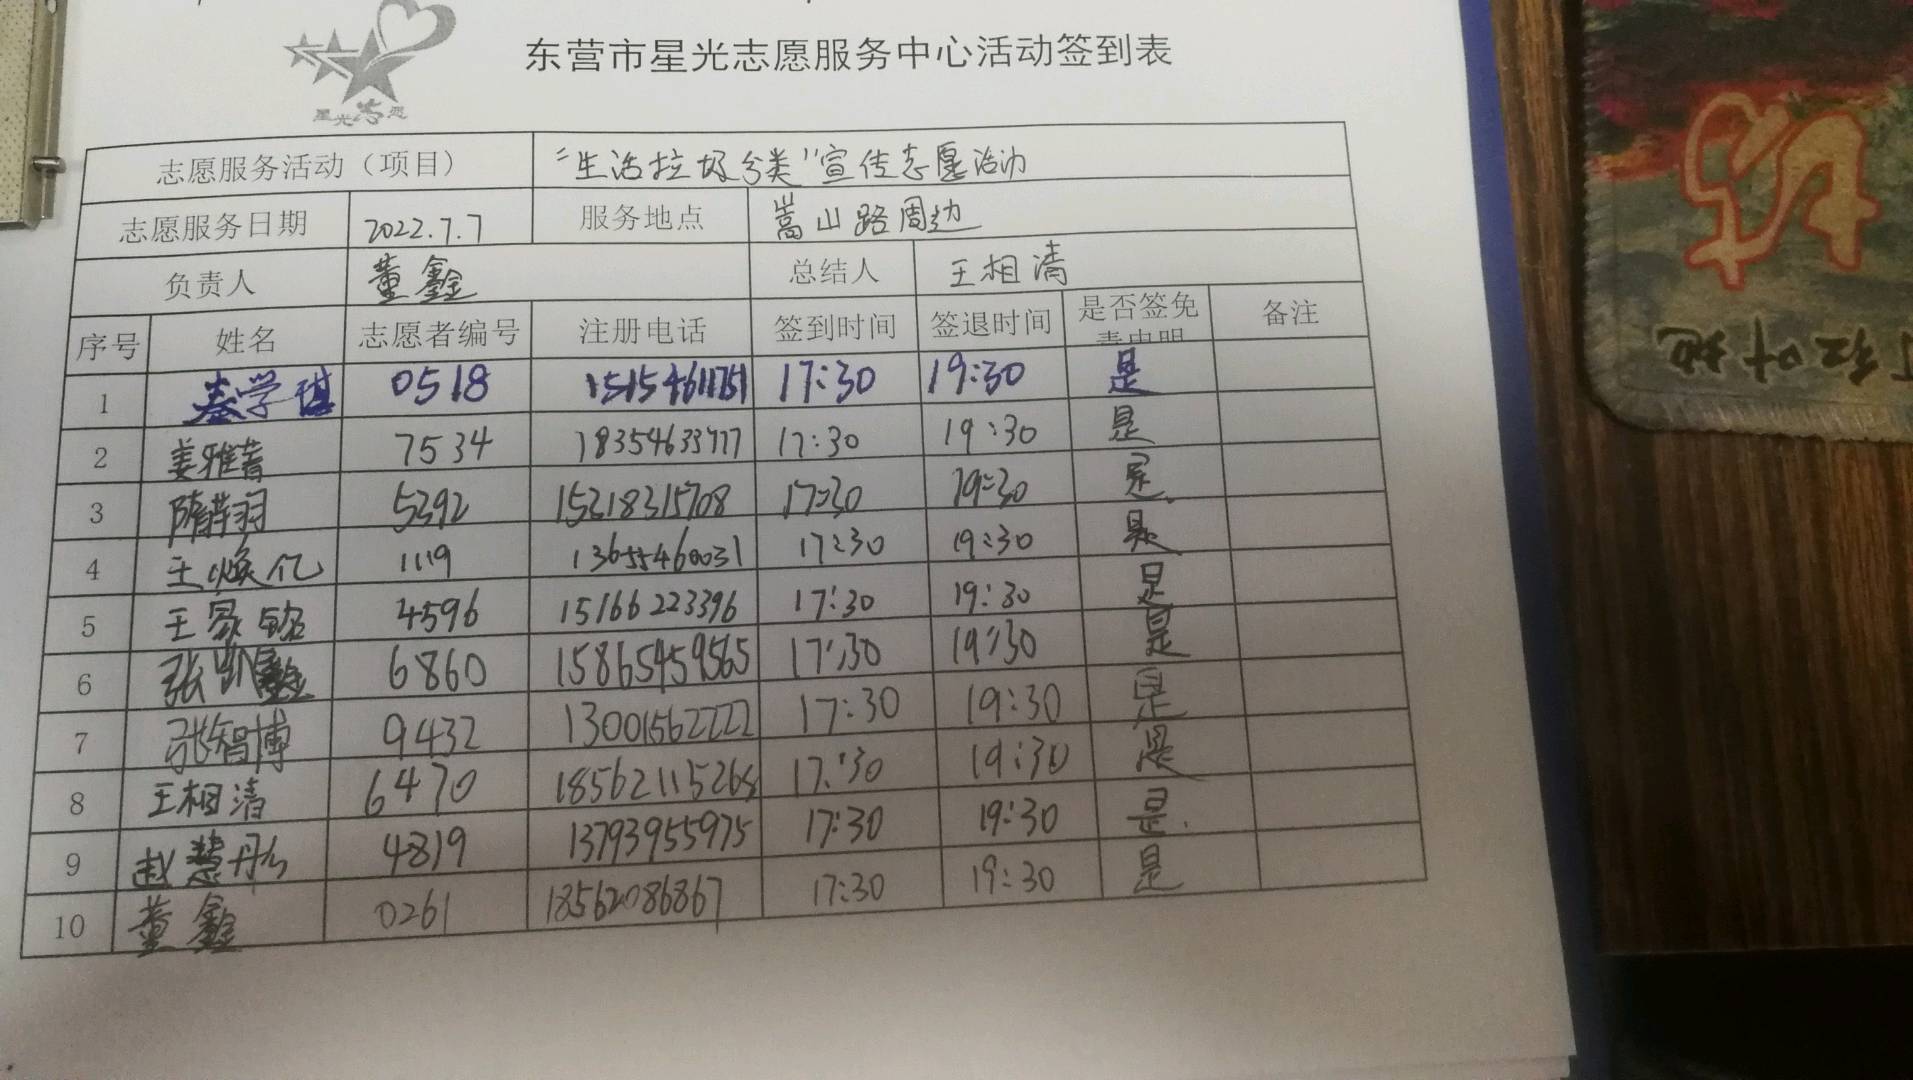 星光志愿
东营市星光志愿服务中心活动签到表
志愿服务活动（项目） “生活垃圾分类”宣传志愿活动
志愿服务日期 2022.7.7 服务地点 嵩山路周边
负责人 董鑫 总结人 王相清
序号 姓名 志愿者编号 注册电话 签到时间 签退时间 是否签免责申明 备注
1 秦学琪 0518 15154611751 17:30 19:30 是
2 姜雅菁 7534 18354633777 17:30 19:30 是
3 隋菁羽 5392 15318315708 17:30 19:30 是
4 王焕亿 1119 13655460031 17:30 19:30 是
5 王家铭 4596 15166223396 17:30 19:30 是
6 张凯鑫 6860 15865459565 17:30 19:30 是
7 张智博 9432 13001562222 17:30 19:30 是
8 王相清 6470 18562115268 17:30 19:30 是
9 赵慧彤 4819 13793955975 17:30 19:30 是
10 董鑫 0261 18562086867 17:30 19:30 是
红叶地